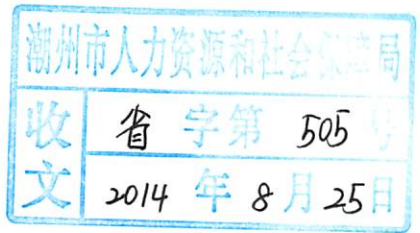 潮州市人力资源和社会保障局
收文
省字第505号
2014年8月25日